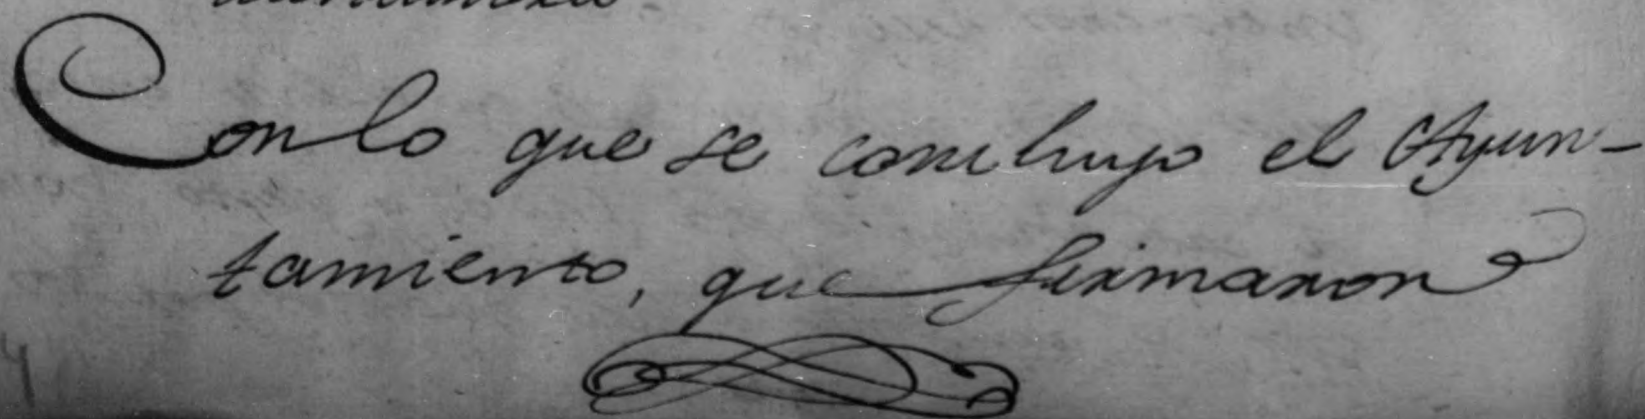 Con lo que se concluyo el Ayun-
tamiento, que firmaron